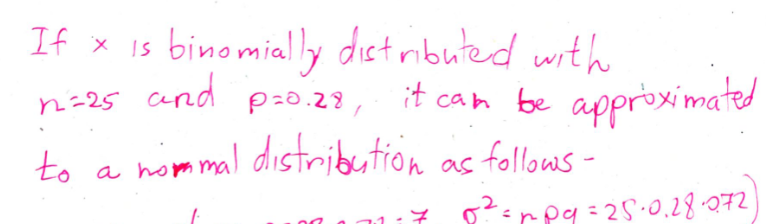 If x is binomially distributed with
n=25 and p=0.28, it can be approximated
to a nommal distribution as follows -
=7 σ²=npq=25·0.28·0.72)